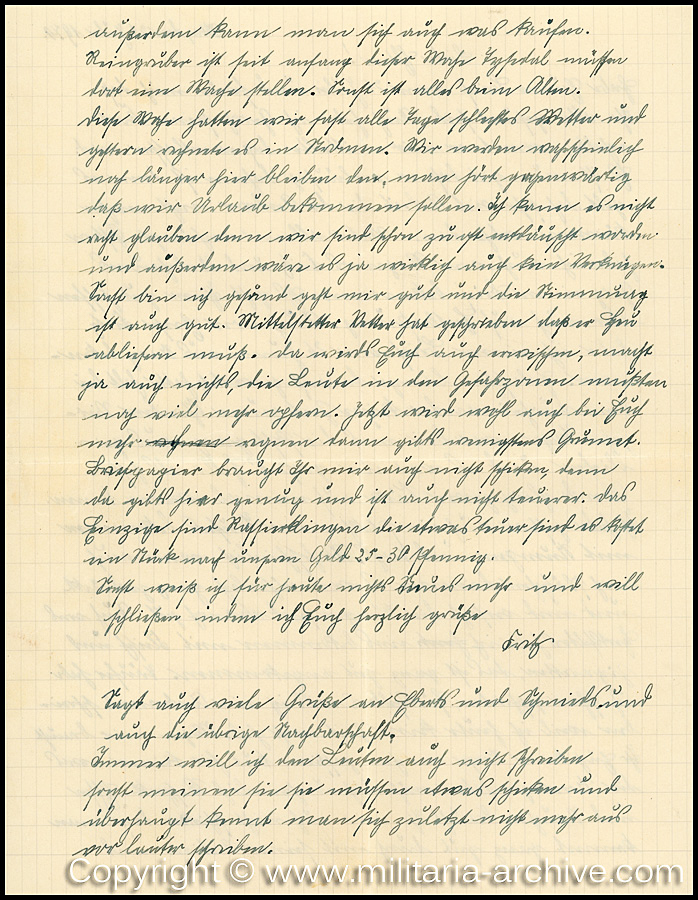 außerdem kann man sich auch was kaufen.
Reingruber ist seit anfang dieser Wohe Tyssedal müssen
dort eine Wache stellen. Sonst ist alles beim Alten.
diese Wohe hatten wir fast alle Tage schlechtes Wetter und
gestern rechnete es in Strömen. Wir werden wahscheinlich
noch länger hier bleiben den, man hört gegenwärtig
daß wir Urlaub bekommen sollen. Ich kann es nicht
recht glauben denn wir sind schon zu oft enttäuscht worden
und außerdem wäre es ja wirklich auch kein Vergnügen.
Sonst bin ich gesund geht mir gut und die Stimmung
ist auch gut. Mittelstetter Vetter hat geschrieben daß er Heu
abliefern muß. da wirds Euch auch erwischen, macht
ja auch nichts, die Leute in den Gefahrzonen mußten
noch viel mehr opfern. Jetzt wird wohl auch bei Euch
mehr regnen dann gibts wenigstens Grumet.
Briefpapier braucht Ihr mir auch nicht schiken, denn
da gibts hier genug und ist auch nicht teuerer. das
Einzige sind Rassierklingen die etwas teuer sind es kostet
ein Stük nach unseren Geld 25-30 Pfennig.
Sonst weiß ich für heute nichts Neues mehr und will
schließen indem ich Euch herzlich grüße
Fritz
Sagt auch viele Grüße an Eberts und Schmieds und
auch die übrige Nachbarschaft.
Immer will ich den Leuten auch nicht schreiben
sonst meinen sie sie müssen etwas schiken und
überhaupt kennt man sich zuletzt nicht mehr aus
vor lauter schreiben.
Copyright © www.militaria-archive.com